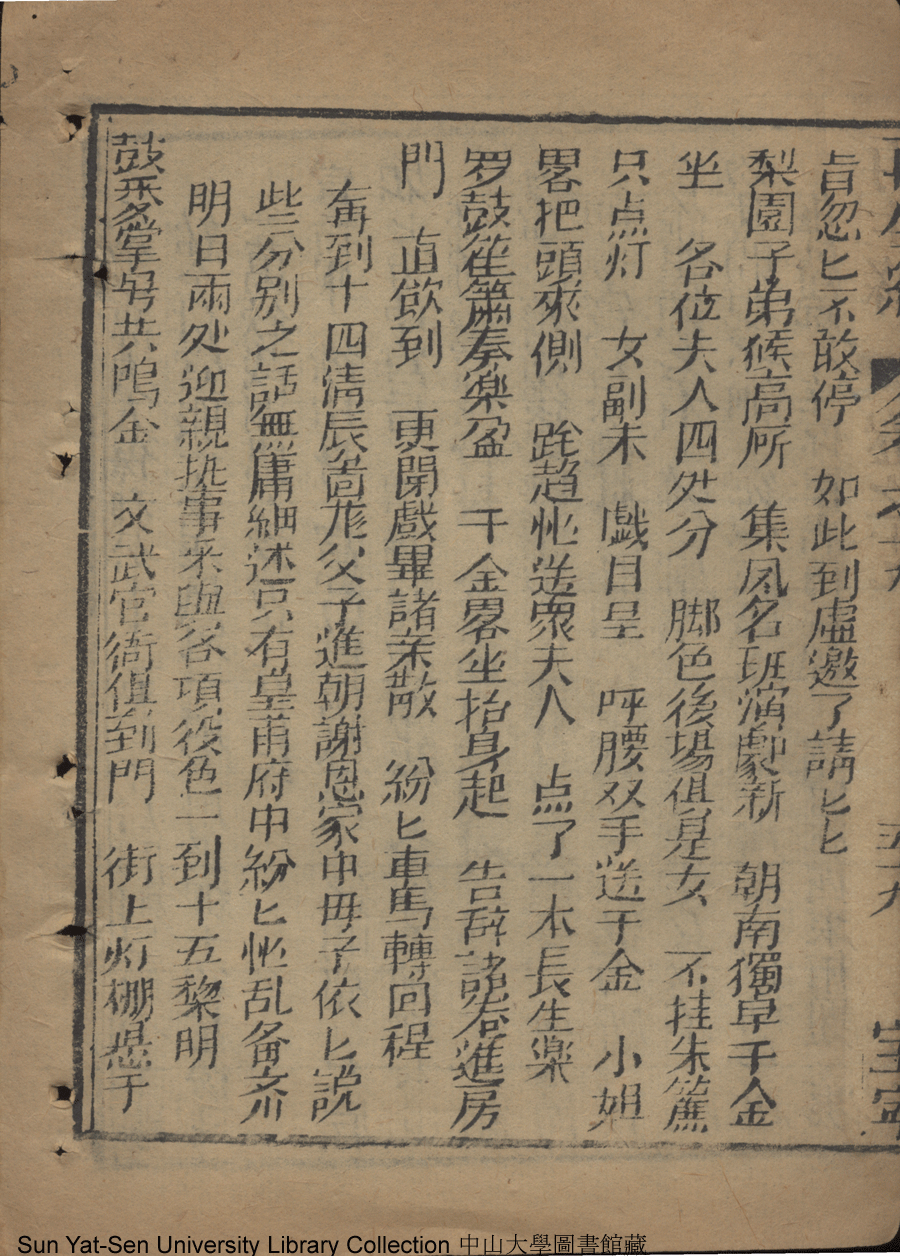 旨忽匕不敢停　如此到處邀了請匕匕
梨園子弟候高所　集凤名班演劇新　朝南獨卓千金
坐　各位夫人四处分　脚色後塲俱是女　不挂朱簾
只点灯　女副末　戯目呈　呼腰双手送千金　小姐
畧把頭來側　跎趋忙送眾夫人　点了一本長生楽
罗鼓笙簫奏楽盈　千金畧坐抬身起　告辝諸卷進房
門　直欲到　更闌戯畢諸亲散　紛匕車馬轉回程
再到十四清辰　父子進朝謝恩家中毋子依匕說
些分别之話無庸細述只有皇甫府中紛匕忙乱备齐
明日兩处迎親执事釆輿各項役色一到十五黎明
鼓乐掌号共鳴金　文武官衙俱到門　街上灯棚懸于
Sun Yat-Sen University Library Collection 中山大學圖書館藏